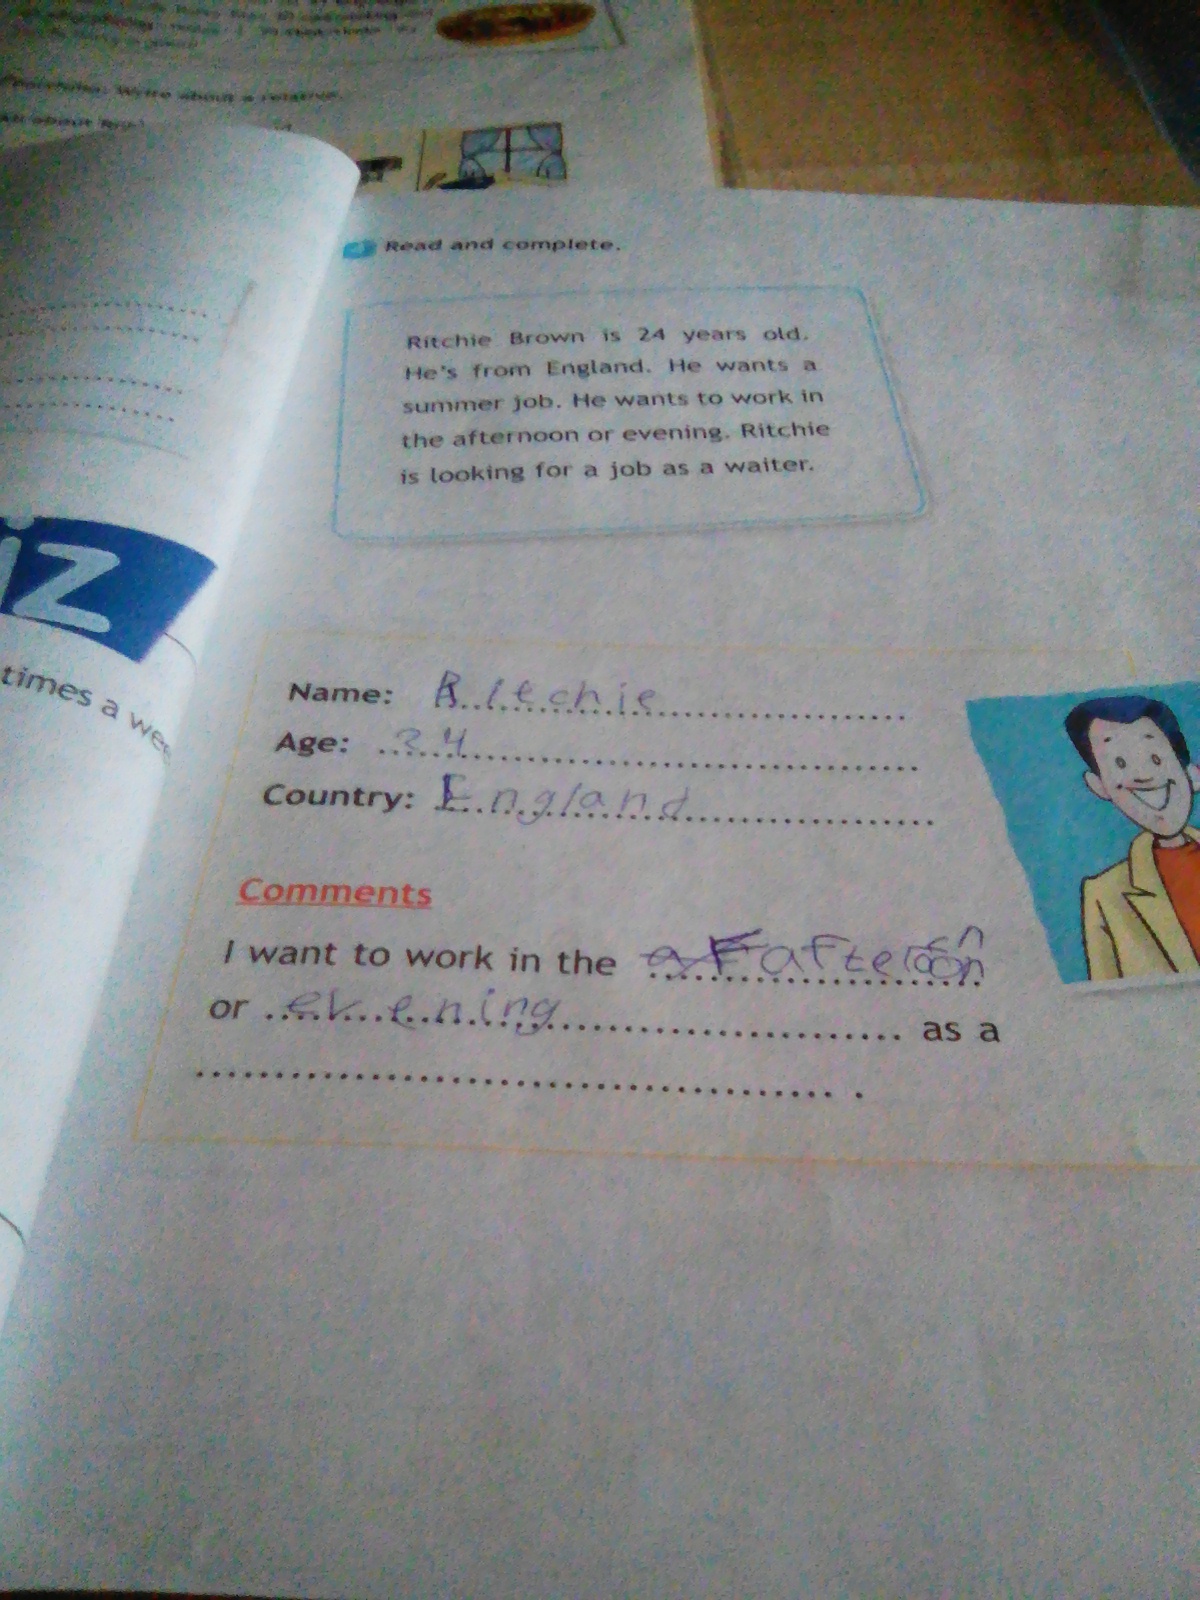 Write about a relative.
All about
Read and complete.
Ritchie Brown is 24 years old.
He's from England. He wants a
summer job. He wants to work in
the afternoon or evening. Ritchie
is looking for a job as a waiter.
iz
times a wee
Name: Ritchie
Age: 24
Country: England
Comments
I want to work in the
or evening as a
.